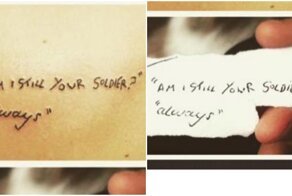 M I STILL YOUR SOLDIER?"
always"
"AM I STILL YOUR SOLDIE
"always"